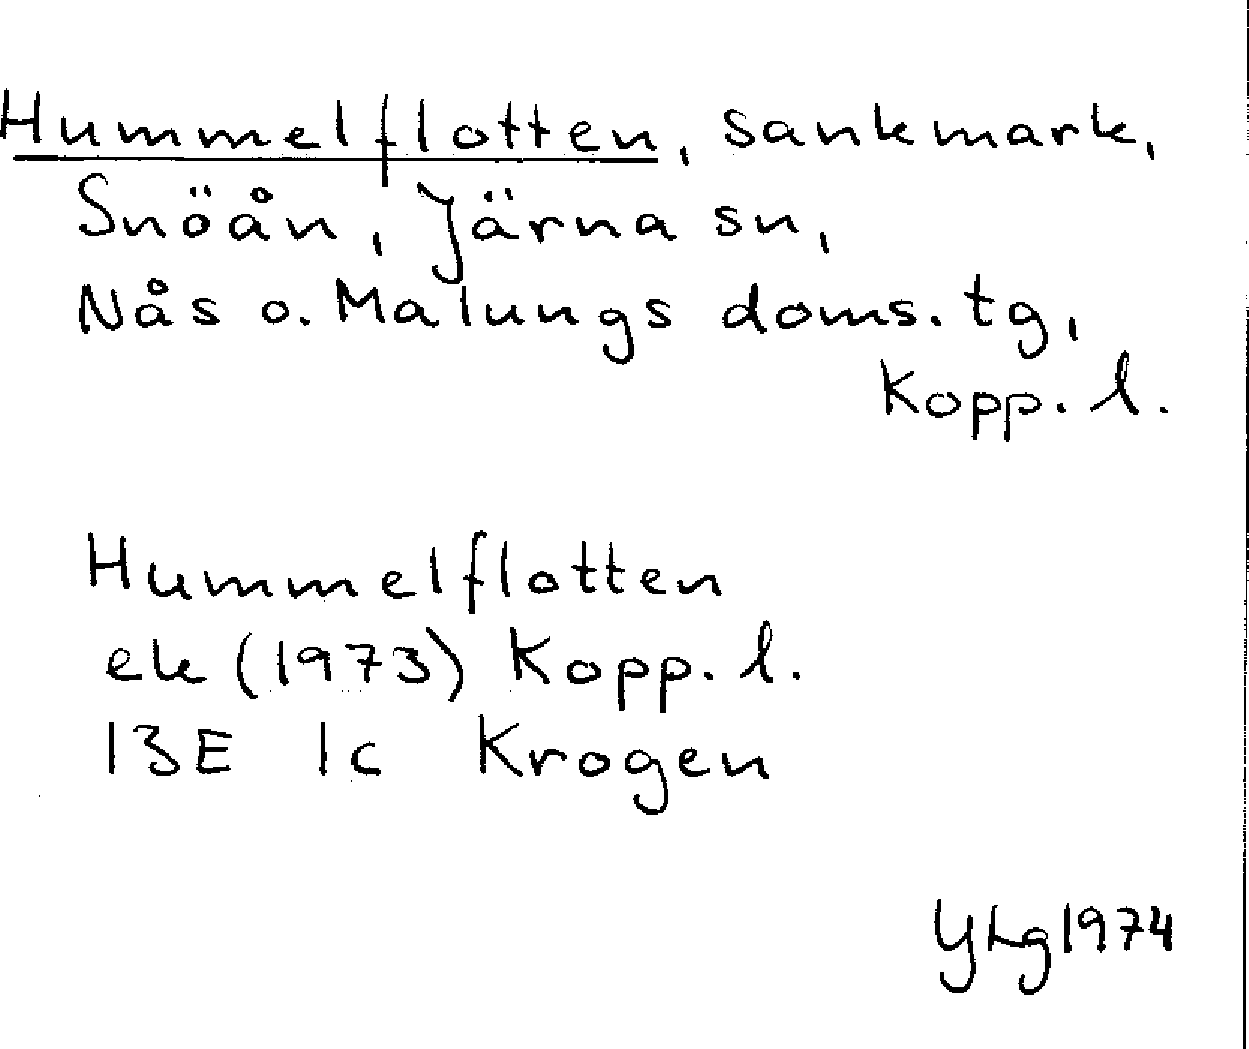 Hummelflotten, sankmark,
Snöån, Järna sn,
Nås o. Malungs doms. tg,
Kopp. l.
Hummelflotten
ek (1973) Kopp. l.
13E 1c Krogen
YLg 1974